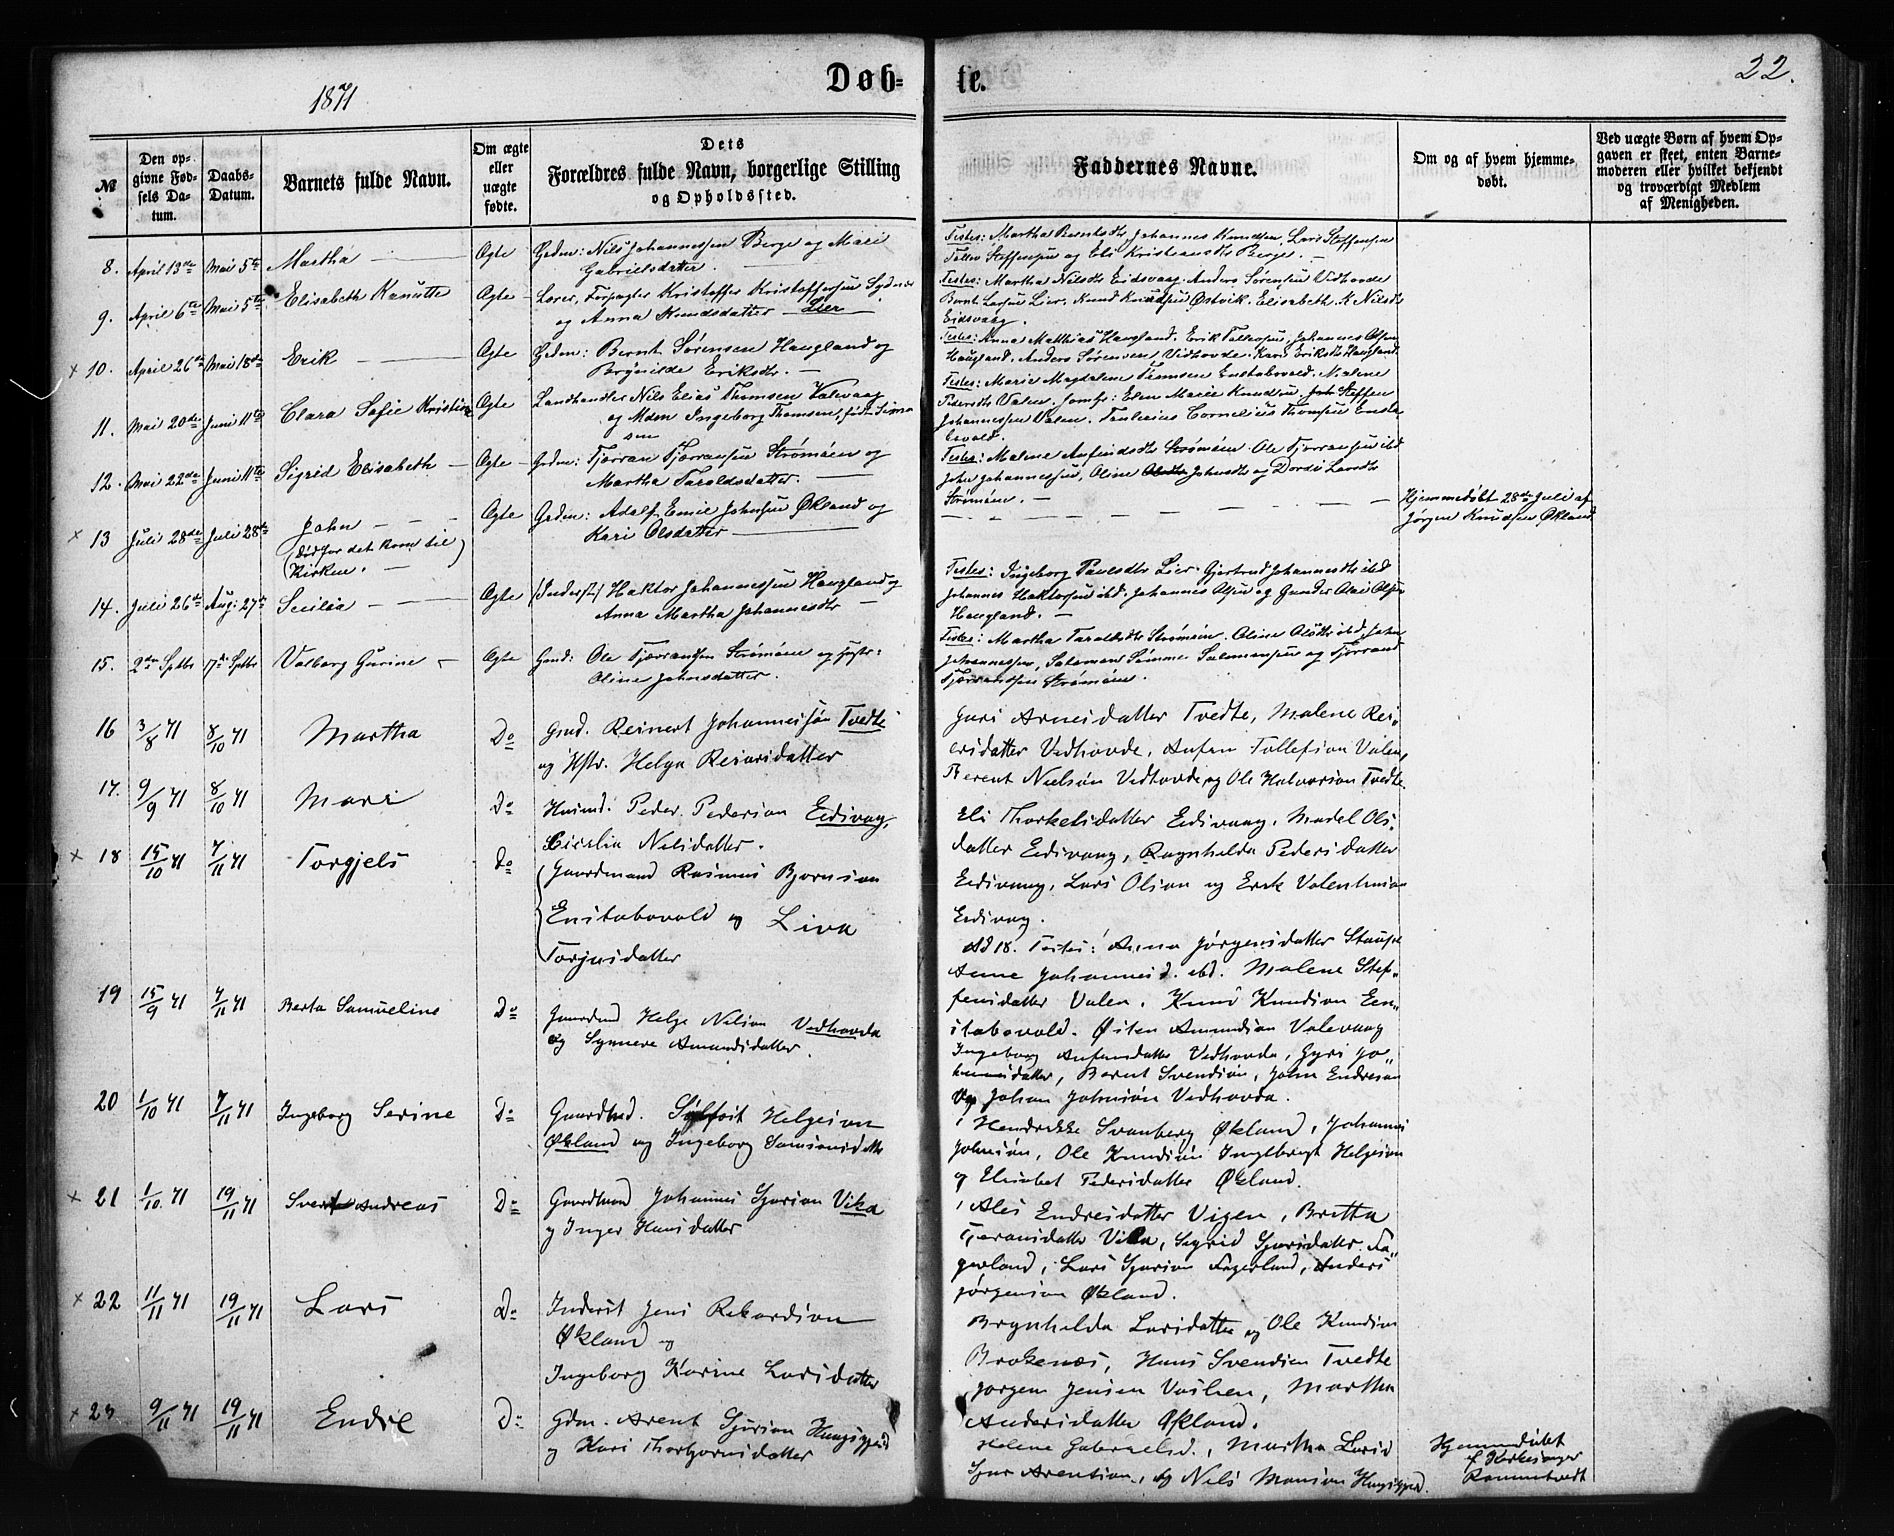 1871
Døb-
te.
22.
№
Den op-
givne Fød-
sels Da-
tum.
Daabs-
Datum.
Barnets fulde Navn.
Om ægte
eller
uægte
fødte.
Dets
Forældres fulde Navn, borgerlige Stilling
og Opholdssted.
Faddernes Navne.
Om og af hvem hjemme-
døbt.
Ved uægte Børn af hvem Op-
gaven er skeet, enten Barne-
moderen eller hvilket bekjendt
og troværdigt Medlem
af Menigheden.
8. April 13de Mai 5te Martha Ægte Grdm: Nils Johannessen Berge og Mari
Gabrielsdatter.
Testes: Martha Berntsdtr Johannes Knudsen, Lars Steffensen
Tollev Steffensen og Eli Kristiansdtr Berge.
9. April 6te Mai 5te Elisabeth Kanutte Ægte Lærer, Forpagter Kristoffer Kristoffersen Sydnes
og Anna Knudsdatter Lier
Testes: Martha Nilsdtr Eidsvaag. Anders Sørensen Vidhovde
Bernt Larsen Lier. Knud Knudsen Østvik. Elisabeth K. Nilsdtr
Eidsvaag.
10. April 26de Mai 18de Erik Ægte Grdm: Bernt Sørensen Haugland og
Brynilde Eriksdtr.
Testes: Anna Matthias Haugland. Erik Tollevsen, Johannes Olsen
Haugland. Anders Sørensen Vidhovde. Kari Eriksdtr Haugland.
11. Mai 20de Juni 11te Clara Sofie Kristine Ægte Landhandler Nils Elias Thomsen Valevaag
og Mdm Ingeborg Thomsen, født Simon
sen
Testes: Marie Magdalene Thomsen Enstabovold. Malene
Pedersdtr Valen. Jomfr: Elen Marie Knudsen, Steffen
Johannessen Valen. Paulerius Cornelius Thomsen Ensta
bovold.
12. Mai 22de Juni 11te Sigrid Elisabeth Ægte Grdm: Tjærran Tjærransen Strømøen og
Martha Taraldsdatter.
Testes: Malene Anfindsdtr Strømøen. Ole Tjerransen ibd
John Johannessen, Oline Johnsdtr og Dordei Larsdtr
Strømøen.
13 Juli 28de Juli 28de John Ægte Grdm: Adolf Emil Johnsen Økland og
(død før det kom til
Kirken.)
Kari Olsdatter
Hjemmedøbt 28de Juli af
Jørgen Knudsen Økland
14. Juli 26de Aug: 27de Secilia Ægte (Inderst) Haktor Johannessen Haugland og
Anna Martha Johannesdtr
Testes: Ingeborg Paulsdtr Lier. Gjertrud Johannesdtr ibd
Johannes Haktorsen ibd. Johannes Olsen og Gunder Olai Olsen
Haugland.
15. 2den Septbr 17de Septbr Valborg Gurine Ægte Grmd: Ole Tjærransen Strømøen og Hustr:
Oline Johnsdatter.
Testes: Martha Taraldsdtr Strømøen. Oline Olsdtr ibd. John
Johannessen, Salamon Sømme Salamonsen og Tjerran
Tjærransen Strømøen.
16 3/8 71 8/10 71 Martha Do Grmd. Reinert Johannessøn Tvedte
og Hstr. Helga Reiersdatter
Guri Arnesdatter Tvedte, Malene Rei-
ersdatter Vedhovde, Anfin Tollefsøn Valen,
Berent Nielsøn Vedhovde og Ole Halvorsøn Tvedte.
17. 9/9 71 8/10 71 Mari Do Husmd. Peder Pedersøn Eidsvag,
Cicelia Nilsdatter.
Eli Thorkelsdatter Eidsvaag, Madel Ols-
datter Eidsvaag, Ragnhilda Pedersdatter
Eidsvaag, Lars Olsøn og Erik Valentinsøn
Eidsvag.
18 15/10 71 7/11 71 Torgjels Do Gaardmand Rasmus Bjørnsøn
Enstabovold og Liva
Torjusdatter
Ad 18. Testes: Anna Jørgensdatter Staupe
Anne Johannesd. ibd. Malene Stef-
fensdatter Valen. Knud Knudsøn En-
stabovold. Østen Amundsøn Valevaag
19 15/9 71 7/11 71 Berta Samueline Do Gaardmd Helge Nilsøn Vedhovda
og Synneve Amundsdatter.
Ingeborg Anfinsdatter Vedhovda, Gyri Jo-
hannesdatter, Berent Svendsøn, John Endresøn
og Johan Johnsøn Vedhovda.
20 1/10 71 7/11 71 Ingeborg Serine Do Gaardmd. Sylfest Helgesøn
Økland og Ingeborg Samsonsdatter
Hendrikke Svanberg Økland, Johannes
Johnsøn, Ole Knudsøn Ingebrigt Helgesøn
og Elisabet Pedersdatter Økland.
21 1/10 71 19/11 71 Andreas Do Gaardmand Johannes Sjursøn Vika
og Inger Hansdatter
Ales Endresdatter Vigen, Britta
Tjeransdatter Vika, Sigrid Sjursdatter Fa-
gerland, Lars Sjursøn Fagerland, Anders
Jørgensøn Økland.
22 11/11 71 19/11 71 Lars Do Inderst Jens Rikardsøn
Økland og
Ingeborg Karine Larsdatter
Brynhilda Larsdatter og Ole Knudsøn
Brakenæs, Hans Svendsen Tvedte
Jørgen Jensen Vaslien, Martha
Andersdatter Økland.
23 9/11 71 19/11 71 Endre Do Gdm. Arent Sjursøn Haugsgjerd
og Kari Thorbjørnsdatter
Helene Gabrielsd., Martha Larsd
Sjur Arentsøn, og Nils Monsøn Haugsgjerd.
Hjemmedøbt
af Kirkesanger
Rommetvedt